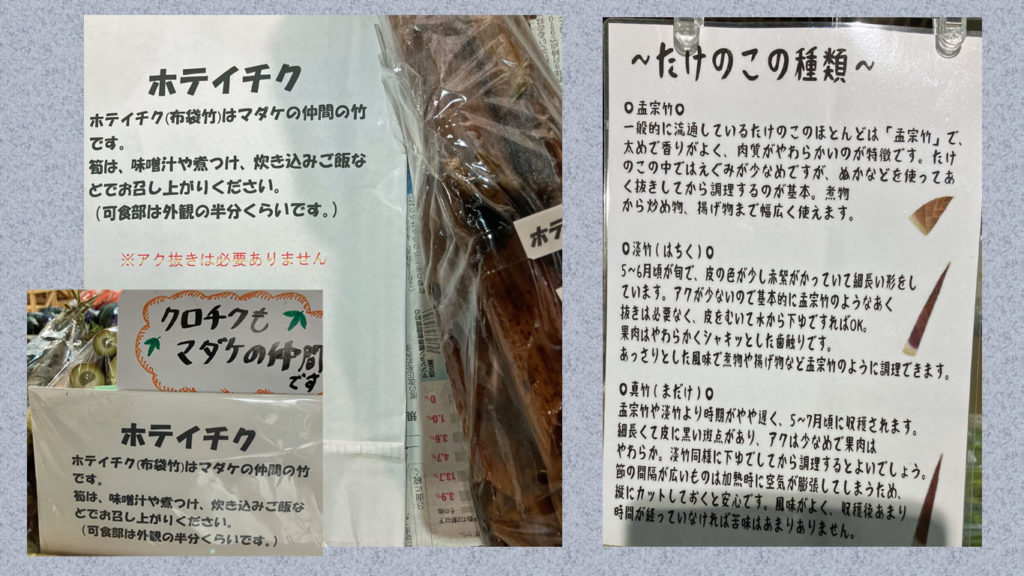 ホテイチク
ホテイチク(布袋竹)はマダケの仲間の竹
です。
筍は、味噌汁や煮つけ、炊き込みご飯な
どでお召し上がりください。
（可食部は外観の半分くらいです。）
※アク抜きは必要ありません
ホテ
クロチクも
マダケの仲間
です
ホテイチク
ホテイチク(布袋竹)はマダケの仲間の竹
です。
筍は、味噌汁や煮つけ、炊き込みご飯な
どでお召し上がりください。
（可食部は外観の半分くらいです。）
～たけのこの種類～
○孟宗竹○
一般的に流通しているたけのこのほとんどは「孟宗竹」で、
太めで香りがよく、肉質がやわらかいのが特徴です。たけ
のこの中ではえぐみが少なめですが、ぬかなどを使ってあ
く抜きしてから調理するのが基本。煮物
から炒め物、揚げ物まで幅広く使えます。
○淡竹(はちく)○
5~6月頃が旬で、皮の色が少し赤紫がかっていて細長い形をし
ています。アクが少ないので基本的に孟宗竹のようなあく
抜きは必要なく、皮をむいて水から下ゆですればOK。
果肉はやわらかくシャキッとした歯触りです。
あっさりとした風味で煮物や揚げ物など孟宗竹のように調理できます。
○真竹(まだけ)○
孟宗竹や淡竹より時期がやや遅く、5~7月頃に収穫されます。
細長くて皮に黒い斑点があり、アクは少なめで果肉は
やわらか。淡竹同様に下ゆでしてから調理するとよいでしょう。
節の間隔が広いものは加熱時に空気が膨張してしまうため、
縦にカットしておくと安心です。風味がよく、収穫後あまり
時間が経っていなければ苦味はあまりありません。